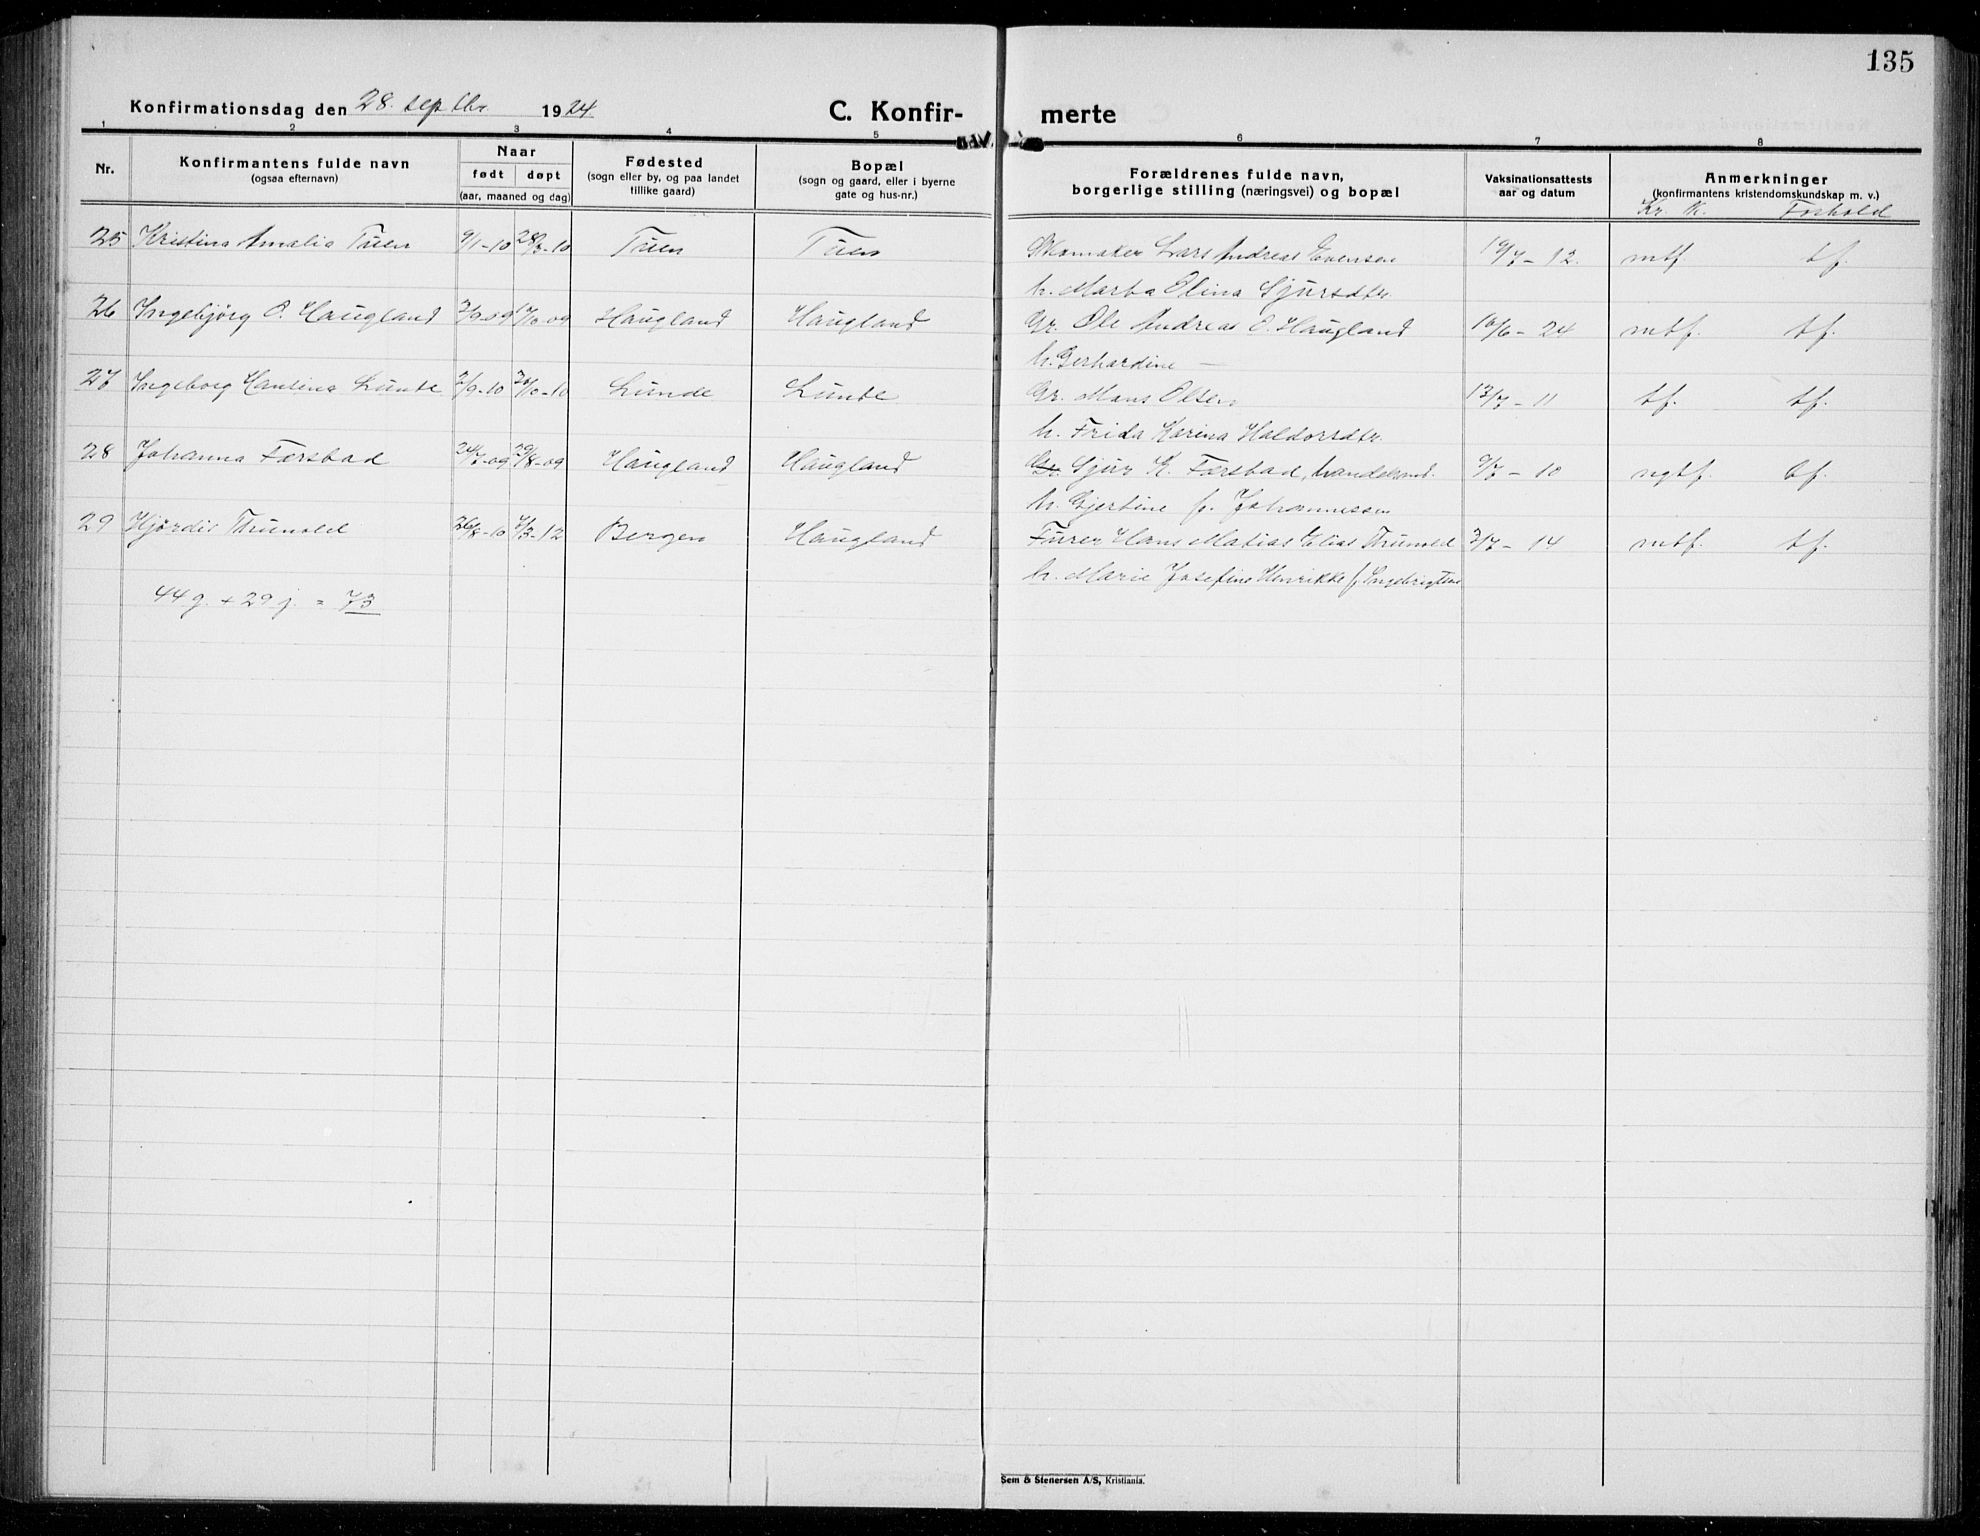 135
Konfirmationsdag den 28. septbr. 1924
C. Konfir- merte
1 2 3 4 5 6 7 8
Nr.
Konfirmantens fulde navn
(ogsaa efternavn)
Naar
født døpt
(aar, maaned og dag)
Fødested
(sogn eller by, og paa landet
tillike gaard)
Bopæl
(sogn og gaard, eller i byerne
gate og hus-nr.)
Forældrenes fulde navn,
borgerlige stilling (næringsvei) og bopæl
Vaksinationsattests
aar og datum
Anmerkninger
(konfirmantens kristendomskundskap m. v.)
Kr. k. Forhold
25 Kristina Amalia Tuen 9/1-10 28/3-10 Tuen Tuen Skomaker Lars Andreas Evensen 19/7-12. mtf. tf.
h. Marta Olina Sjursdtr.
26 Ingebjörg O. Haugland 2/9-09 17/10-09 Haugland Haugland Gr. Ole Andreas O. Haugland 16/6-24 mtf. tf.
h. Gerhardine —
27 Ingeborg Hansina Lunde 2/9-10 30/10-10 Lunde Lunde Gr. Mons Olsen 13/7-11 tf. tf.
h. Frida Karina Haldorsdtr.
28 Johanna Færstad 24/7-09 29/8-09 Haugland Haugland Gr. Sjur K. Færstad, handelsmd. 9/7-10 ngtf. tf.
h. Gjertine f. Johannessen
29 Hjördis Thunold 26/8-10 4/3-12 Bergen Haugland Furer Hans Matias Elias Thunold 3/7-14 mtf. tf.
h. Marie Josefine Henrikke f. Ingebrigtsen
44 g. + 29 j. = 73
Sem & Stenersen A/S, Kristiania.